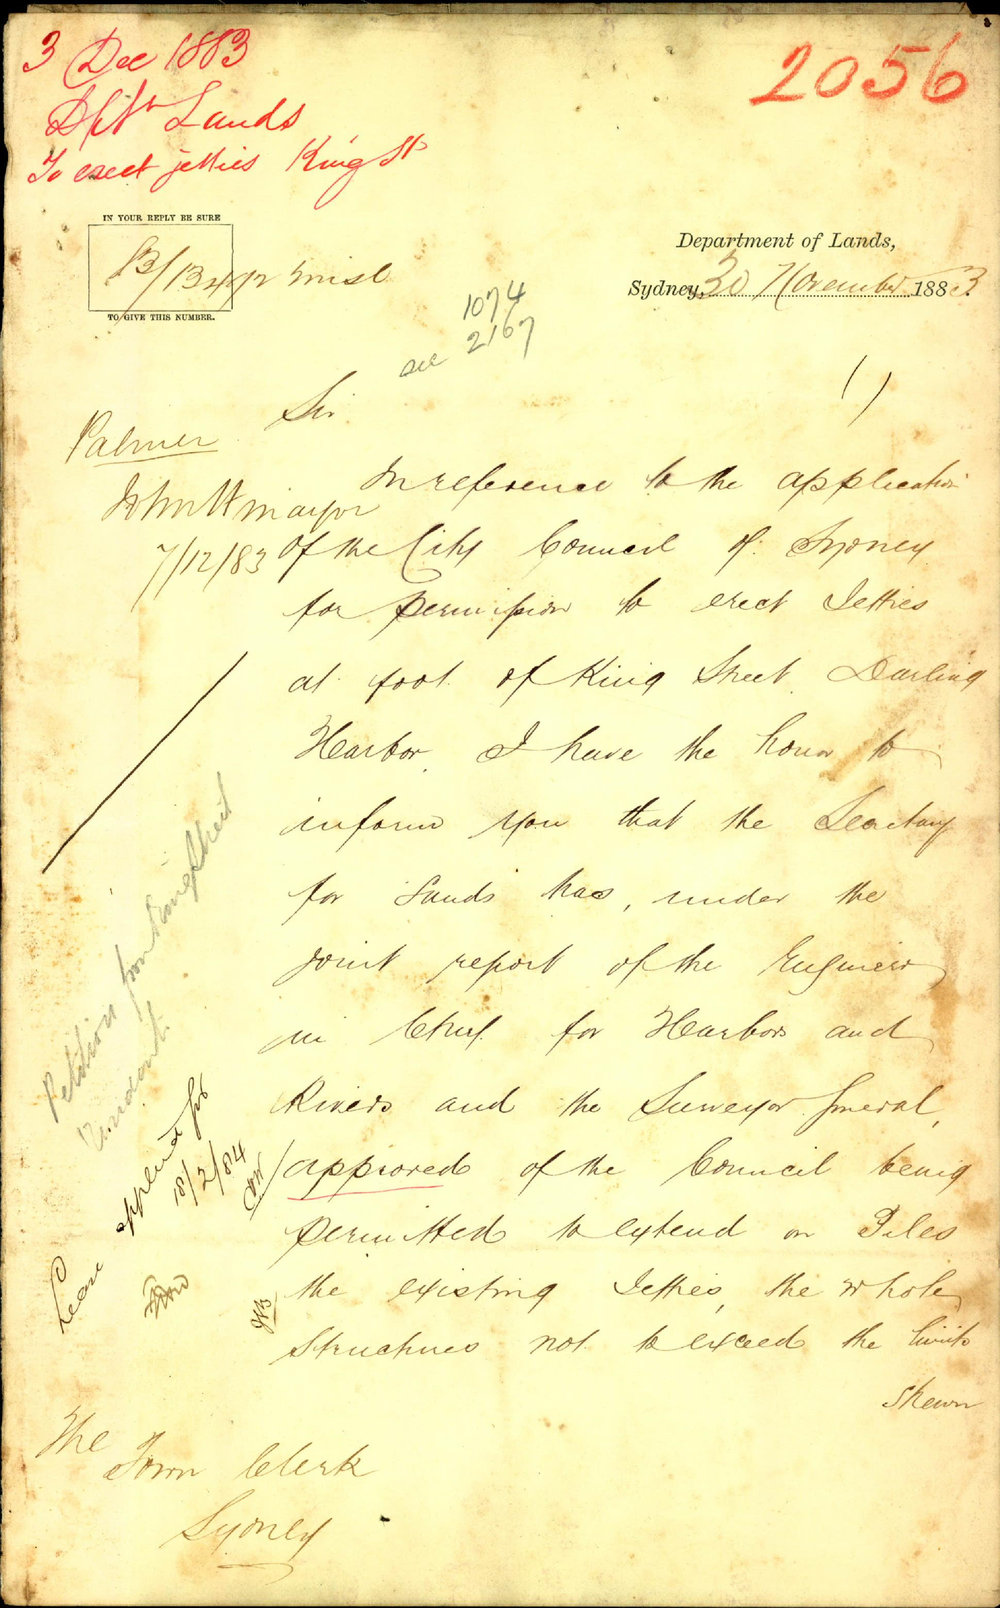 3 Dec 1883
2056
Dptn Lands
To erect jetties King St
IN YOUR REPLY BE SURE
TO GIVE THIS NUMBER.
Misl
Department of Lands,
Sydney, 30 November 1883.
1074
see 2167
Sir
Palmer
Mayor
7/12/83
In reference to the application
of the City Council of Sydney
for permission to erect Jetties
at foot of King Street Darling
Harbor, I have the honor to
inform you that the Secretary
for Lands has, under the
joint report of the Engineer
in Chief for Harbors and
Rivers and the Surveyor General,
approved of the Council being
permitted to extend on Piles
the existing Jetties, the whole
structures not to exceed the limits
shewn
Petition from King Street
Lease applied for
18/2/84
The
Town Clerk
Sydney